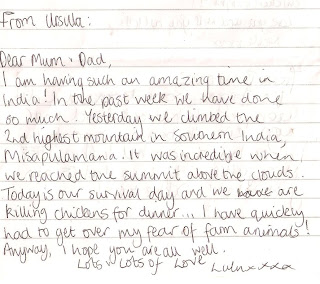 From Ursula:
Dear Mum + Dad,
I am having such an amazing time in
India! In the past week we have done
so much! Yesterday we climbed the
2nd highest mountain in Southern India,
Misapulamana. It was incredible when
we reached the summit above the clouds.
Today is our survival day and we are
killing chickens for dinner... I have quickly
had to get over my fear of farm animals!
Anyway, I hope you are all well.
Lots + Lots of Love Lulu xxxx